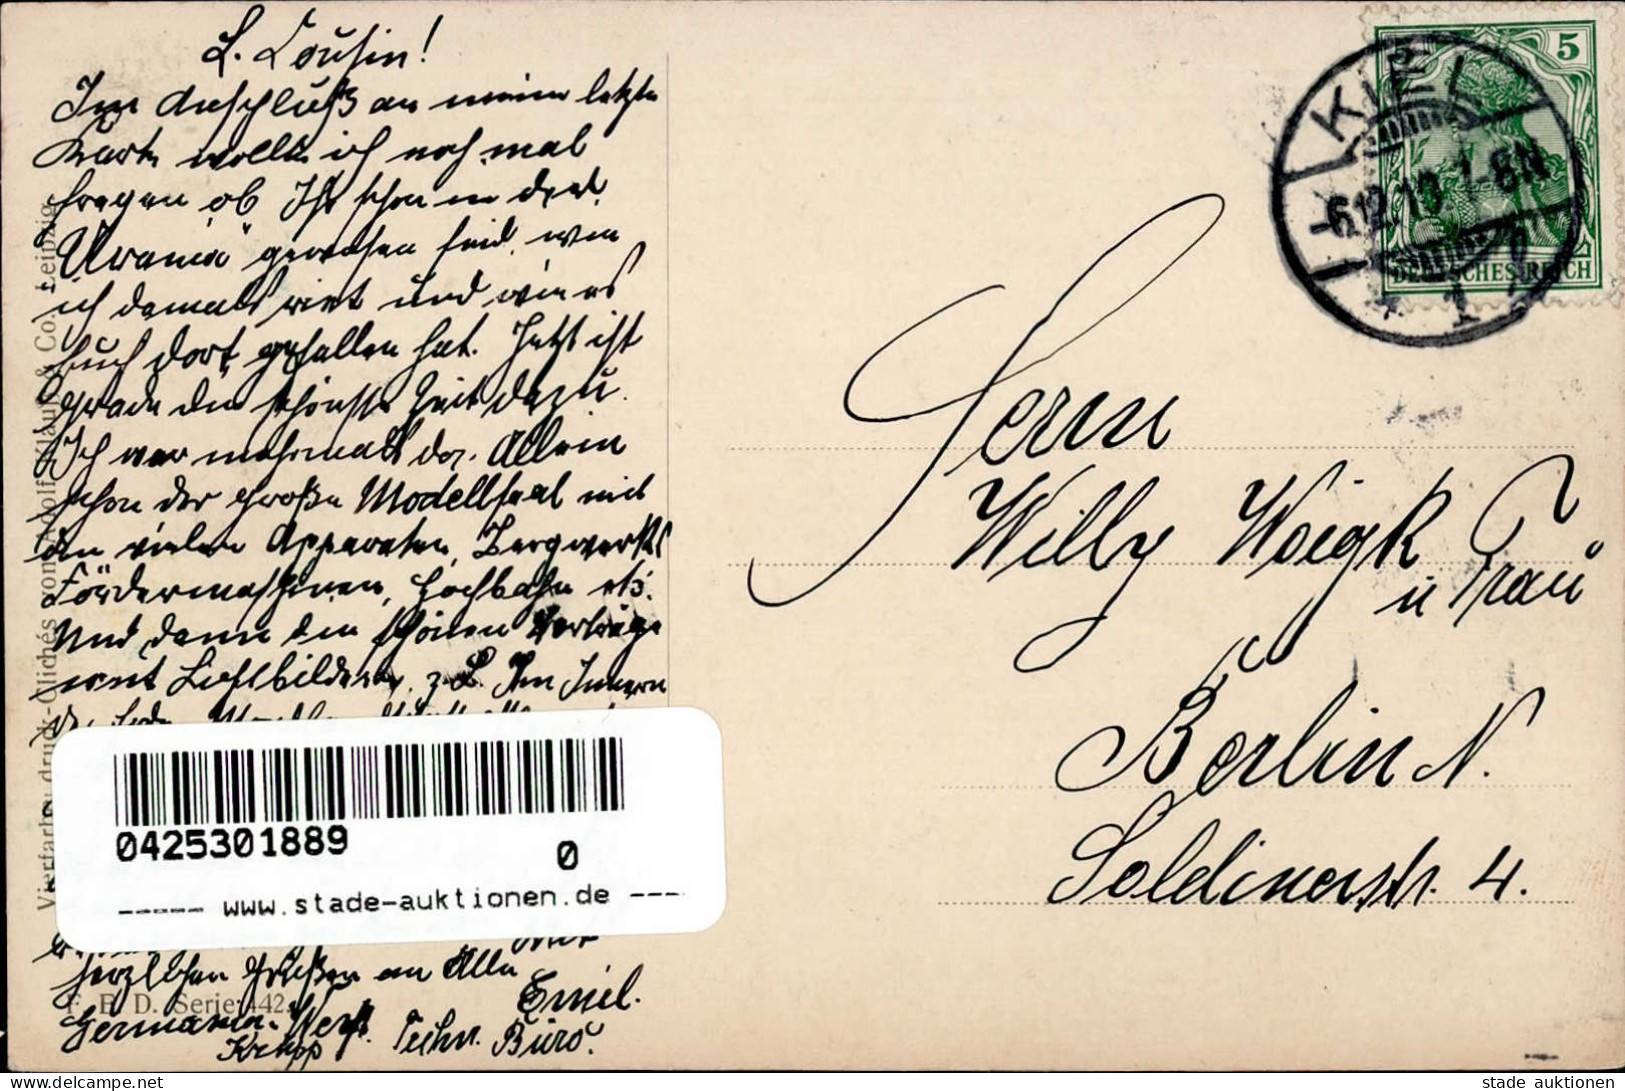 L. Cousin!
Im Anschluß an meine letzte
Karte wollte ich noch mal
fragen ob Ihr schon in der
"Urania" gewesen seid wie
ich damals riet und wie es
Euch dort gefallen hat. Jetzt ist
gerade die schönste Zeit dazu.
Ich war mehrmals da. Allein
schon der große Modellsaal mit
den vielen Apparaten, Bergwerks
Fördermaschinen, Hochbahn etc.
Und dann die schönen Vorträge
mit Lichtbildern, z.B. Im Innern
der
herzlichen Grüßen an Alle
Emil.
Germania-Werft. Techn. Büro.
Krupp
Vierfarbendruck-Clichés von Adolf Klauß & Co., Leipzig
F. E. D. Serie 442.
0425301889
0
----- www.stade-auktionen.de ----
5
DEUTSCHES REICH
KIEL
6.12.10.7-8N
* 1
Herrn
Willy Woigk
u Frau
Berlin N.
Soldinerstr. 4.
www.delcampe.net
stade auktionen